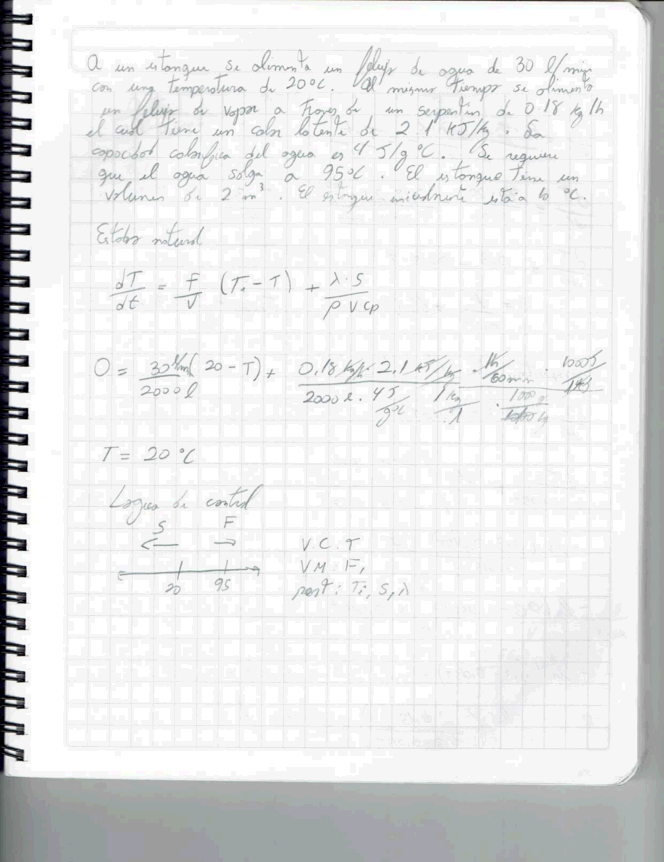 A un estanque se alimenta un flujo de agua de 30 l/min
con una temperatura de 20°C. Al mismo tiempo se alimenta
un flujo de vapor a traves de un serpentin de 0.18 kg/h
el cual tiene un calor latente de 2.1 KJ/kg. La
capacidad calorifica del agua es 4 J/g °C. Se requiere
que el agua salga a 95°C. El estanque tiene un
volumen de 2 m³. El estanque inicialmente esta a 10 °C.
Estado natural
dT/dt = F/V (Ti - T) + λ·S/ρVcp
0 = 30 l/m/2000 l (20 - T) + 0,18 kg/h · 2,1 KJ/kg · 1h/60min · 1000J/1KJ / 2000 l · 4 J/g°C · 1 kg/l · 1000 g/1 kg
T = 20 °C
Logica de control
S F
← → V.C. T
20 95 VM F,
pert: Ti, S, λ